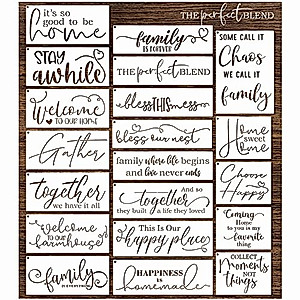 it's so
good to be
home
STAY
awhile
Welcome
TO OUR HOME
Gather
together
we have it all
welcome
TO OUR
farmhouse
family
family
IS FOREVER
THE perfect BLEND
bless THIS mess
bless our nest
family where life begins
and love never ends
And so
together
they built a life they loved
This Is Our
Happy place
HAPPINESS
homemade
THE perfect BLEND
SOME CALL IT
Chaos
WE CALL IT
family
Home
sweet
Home
Choose
Happy
Coming
Home
to you is my
favorite
thing
COLLECT
Moments
NOT
things